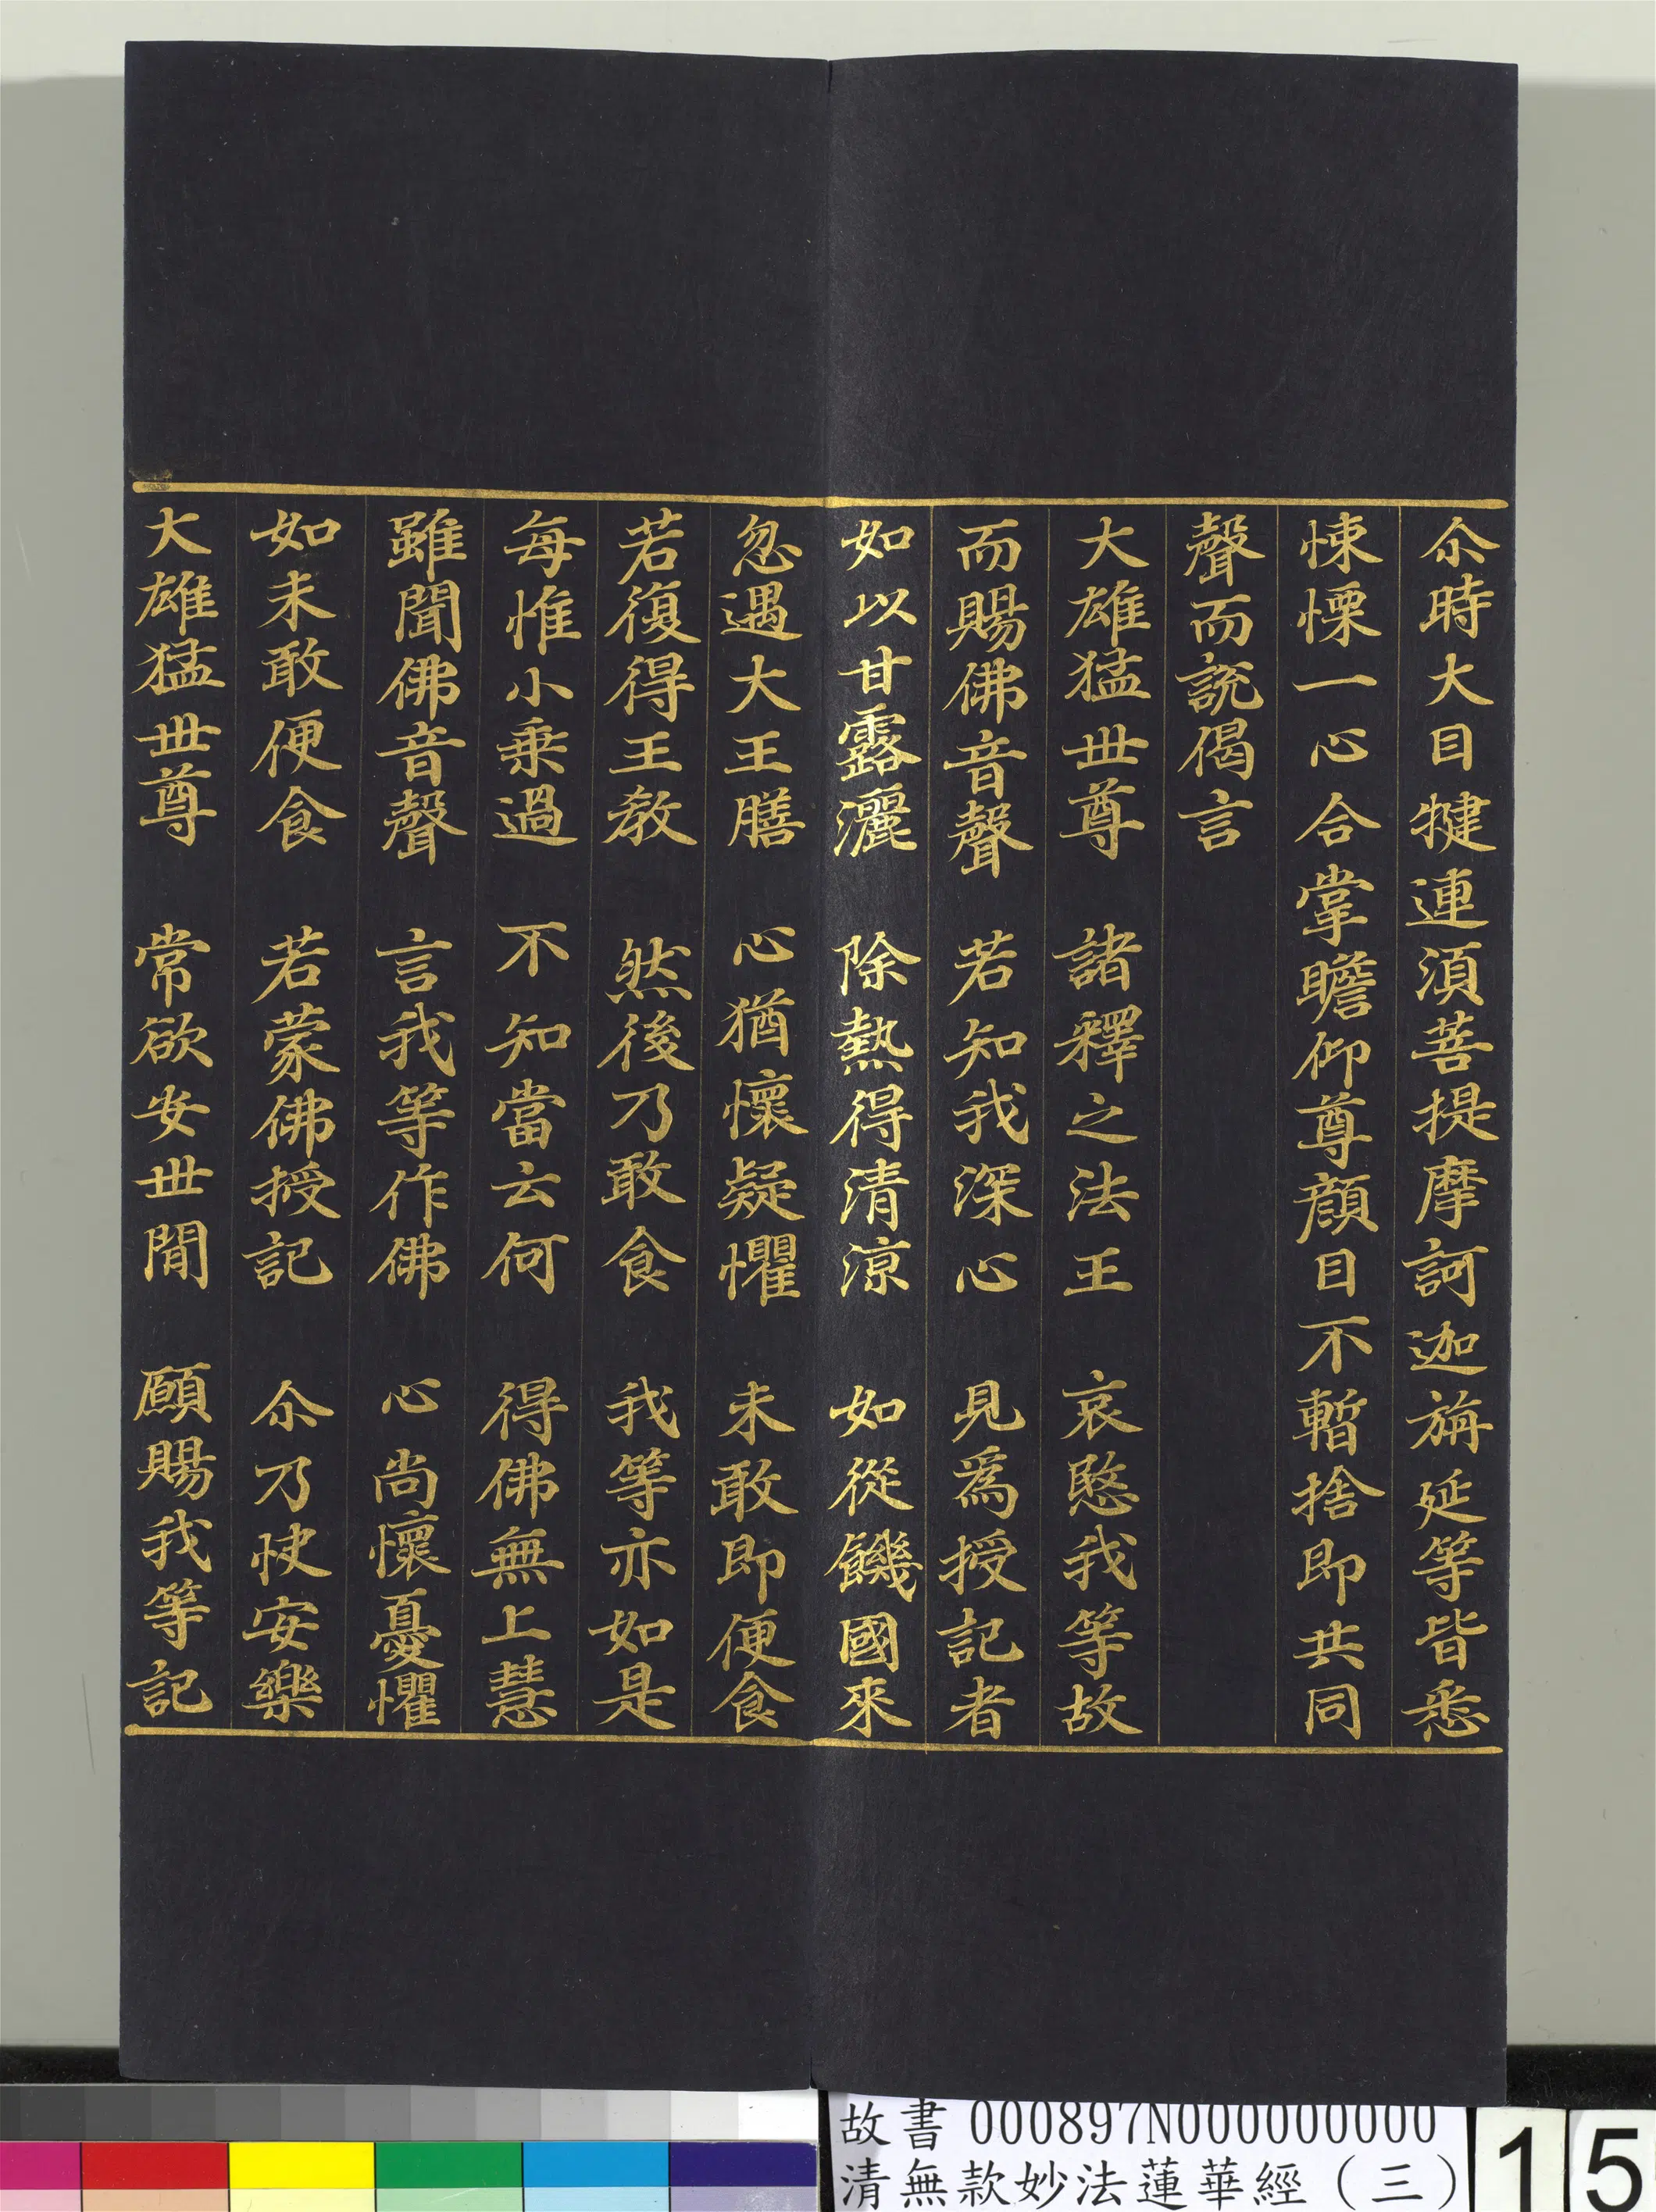 尒時大目犍連須菩提摩訶迦旃延等皆悉
悚慄一心合掌瞻仰尊顏目不暫捨即共同
聲而說偈言
大雄猛世尊　諸釋之法王　哀愍我等故
而賜佛音聲　若知我深心　見為授記者
如以甘露灑　除熱得清涼　如從饑國來
忽遇大王膳　心猶懷疑懼　未敢即便食
若復得王教　然後乃敢食　我等亦如是
每惟小乘過　不知當云何　得佛無上慧
雖聞佛音聲　言我等作佛　心尚懷憂懼
如未敢便食　若蒙佛授記　尒乃快安樂
大雄猛世尊　常欲安世間　願賜我等記
故書 000897N000000000
清無款妙法蓮華經（三）
15